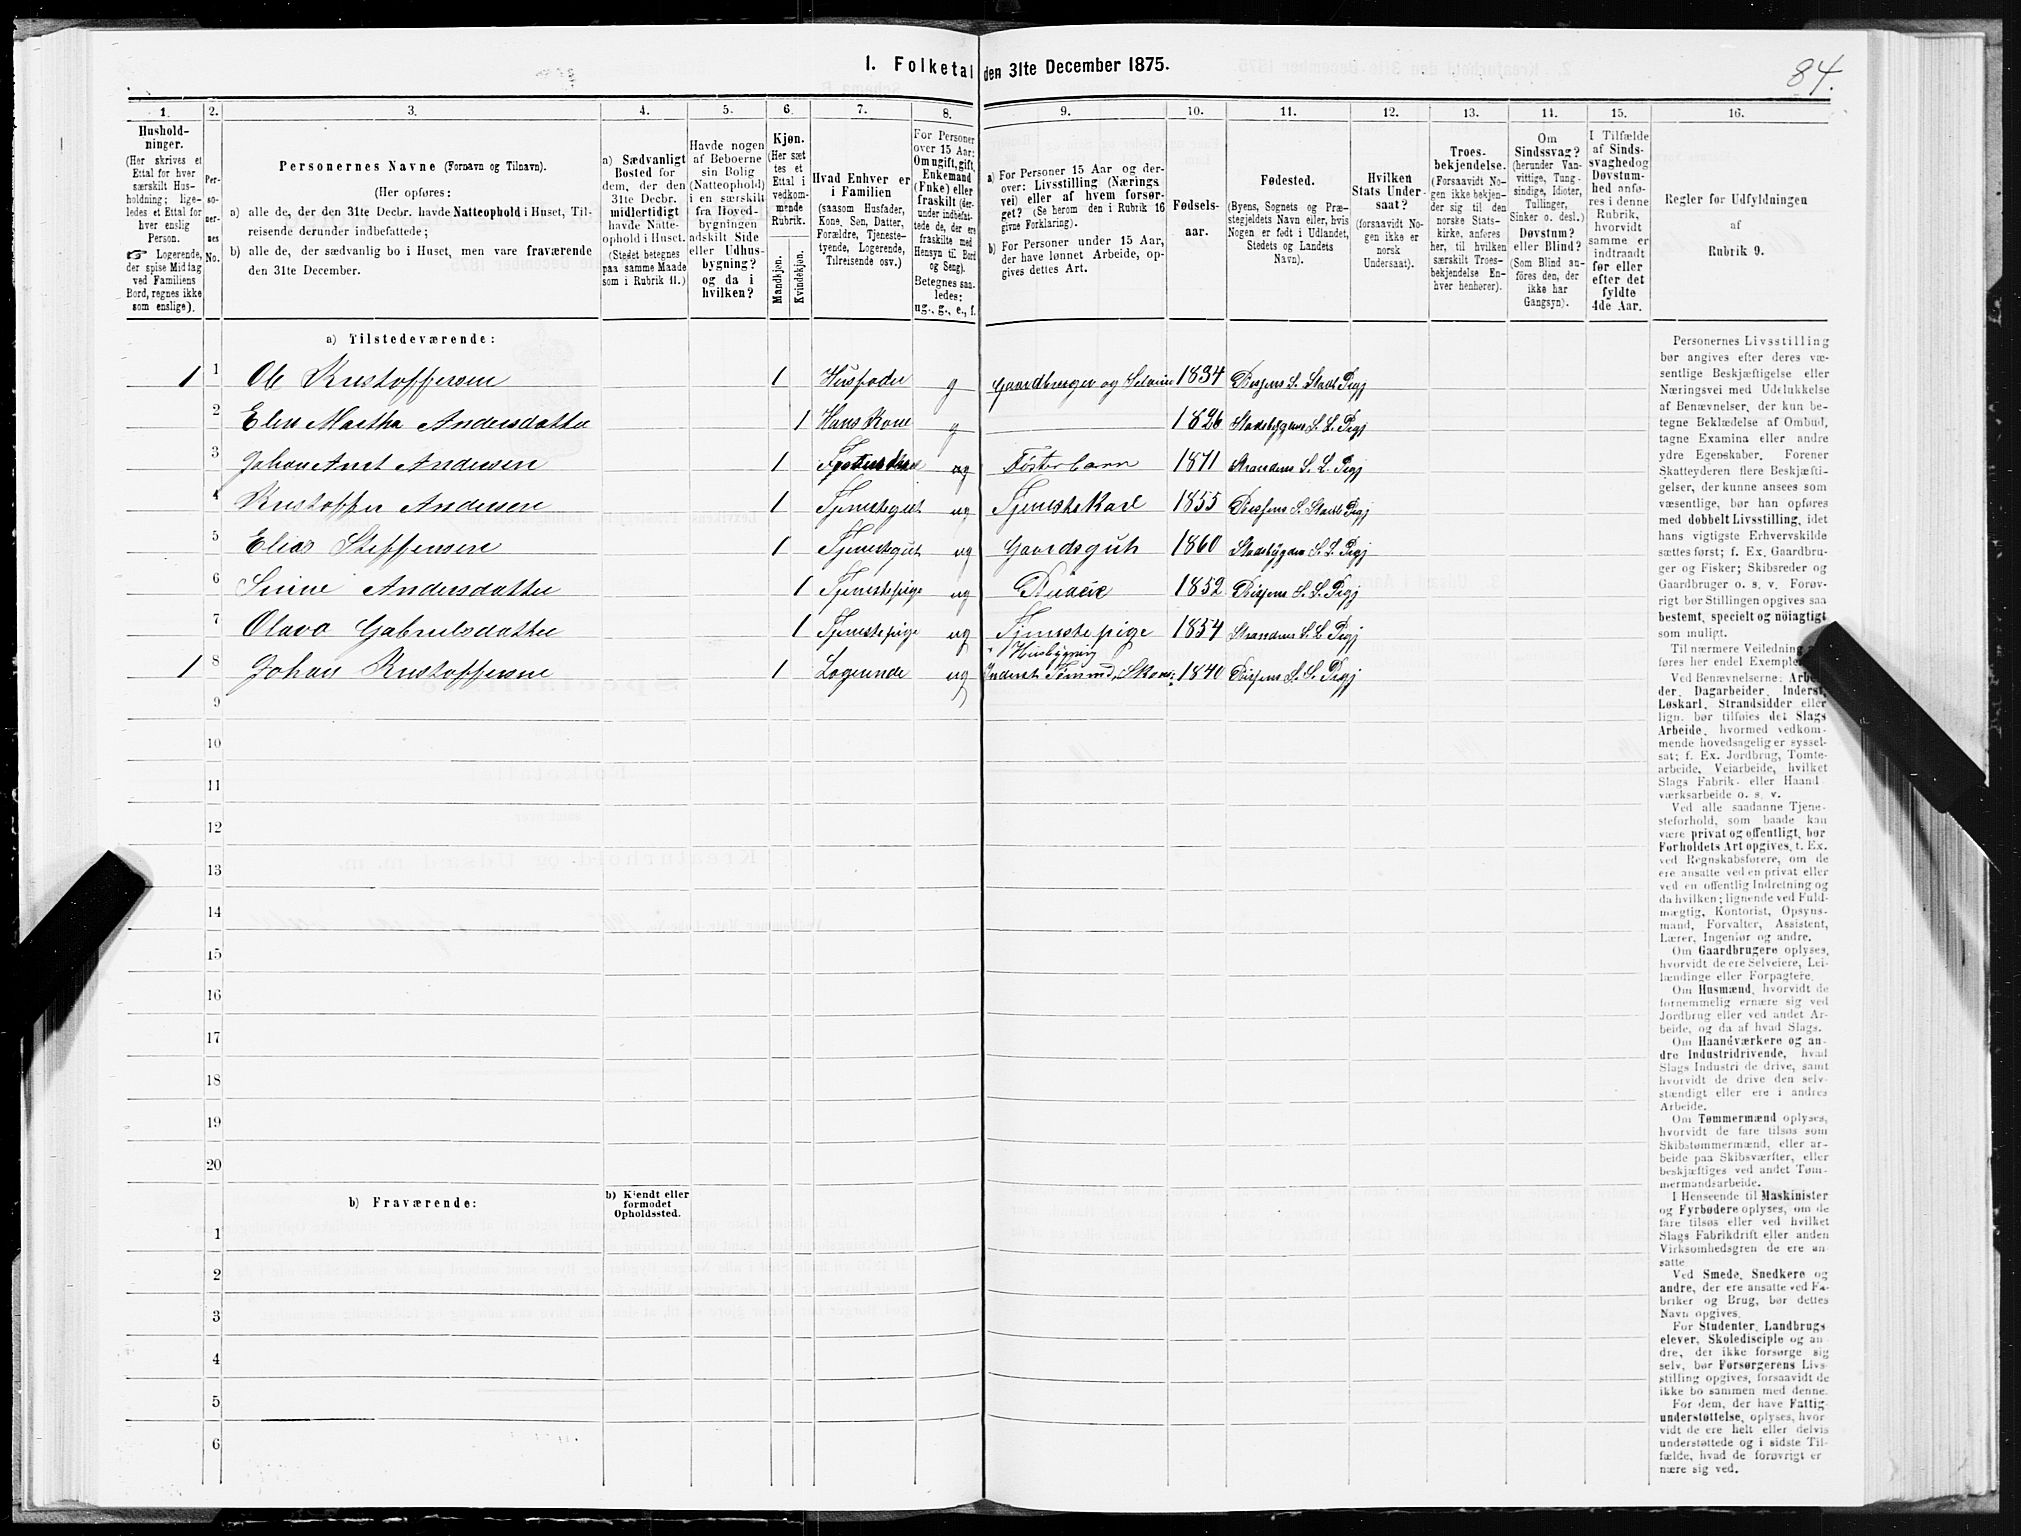 1. Folketal den 31te December 1875.
84.
1.
Hushold-
ninger.
(Her skrives et
Ettal for hver
særskilt Hus-
holdning; lige-
ledes et Ettal for
hver enslig
Person.
☞ Logerende,
der spise Middag
ved Familiens
Bord, regnes ikke
som enslige).
2.
Per-
soner-
nes
No.
3.
Personernes Navne (Fornavn og Tilnavn).
(Her opføres:
a) alle de, der den 31te Decbr. havde Natteophold i Huset, Til-
reisende derunder indbefattede;
b) alle de, der sædvanlig bo i Huset, men vare fraværende
den 31te December.
4.
a) Sædvanligt
Bosted for
dem, der den
31te Decbr.
midlertidigt
havde Natte-
ophold i Huset.
(Stedet betegnes
paa samme Maade
som i Rubrik 11.)
5.
Havde nogen
af Beboerne
sin Bolig
(Natteophold)
i en særskilt
fra Hoved-
bygningen
adskilt Side
eller Udhus-
bygning?
og da i
hvilken?
6.
Kjøn.
(Her sæt
tes et
Ettal i
vedkom-
mende
Rubrik.
Mandkjøn.
Kvindekjøn.
7.
Hvad Enhver er
i Familien
(saasom Husfader,
Kone, Søn, Datter,
Forældre, Tjeneste-
tyende, Logerende,
Tilreisende osv.)
8.
For Personer
over 15 Aar:
Om ugift, gift,
Enkemand
(Enke) eller
fraskilt (der-
under indbefat-
tede de, der ere
fraskilte med
Hensyn til Bord
og Seng).
Betegnes saa-
ledes:
ug., g., e., f.
9.
a) For Personer 15 Aar og der-
over: Livsstilling (Nærings
vei) eller af hvem forsør-
get? (Se herom den i Rubrik 16
givne Forklaring).
b) For Personer under 15 Aar,
der have lønnet Arbeide, op-
gives dettes Art.
10.
Fødsels-
aar.
11.
Fødested.
(Byens, Sognets og Præ-
stegjeldets Navn eller, hvis
Nogen er født i Udlandet,
Stedets og Landets
Navn).
12.
Hvilken
Stats Under-
saat?
(forsaavidt No-
gen ikke er
norsk
Undersaat).
13.
Troes-
bekjendelse.
(Forsaavidt No-
gen ikke bekjen-
der sig til den
norske Stats-
kirke, anføres
her, til hvilken
særskilt Troes-
bekjendelse En-
hver henhører).
14.
Om
Sindssvag?
(herunder Van-
vittige, Tung-
sindige, Idioter,
Tullinger,
Sinker o. desl.)
Døvstum?
eller Blind?
(Som Blind an-
føres den, der
ikke har
Gangsyn).
15.
I Tilfælde
af Sinds-
svaghed og
Døvstum-
hed anfø-
res i denne
Rubrik,
hvorvidt
samme er
indtraadt
før eller
efter det
fyldte
4de Aar.
16.
Regler for Udfyldningen
af
Rubrik 9.
a) Tilstedeværende:
1 1 Ole Kristoffersen 1 Husfader g Gaardbruger og Selveier 1834 Reisens S. Stads Pregj
2 Elen Martha Andersdatter 1 Hans Kone g 1826 Stadsbygens S. S. Pregj
3 Johan Arnt Andersen 1 ug Fósterbarn 1871 Strandens S. L. Pregj
4 Kristoffer Andersen 1 Tjenestegut ug Tjenestekarl 1855 Reisens S. Stads Pregj
5 Elias Steffensen 1 Tjenestgut ug Gaardsgut 1860 Stadsbygden S. S. Pregj
6 Sirine Andersdatter 1 Tjenestepige ug Budeie 1852 Reisens S. S. Pregj
7 Olava Gabrielsdatter 1 Tjenestepige ug Tjenestepige 1854 Strandens S. L. Pregj
Husbygning
1 8 Johan Kristoffersen 1 Logerende ug Inderst Tømmer 1840 Reisens S. S. Pregj
9
10
11
12
13
14
15
16
17
18
19
20
b) Fraværende:
b) Kjendt eller
formodet
Opholdssted.
1
2
3
4
5
6
Personernes Livsstilling
bør angives efter deres væ-
sentlige Beskjæftigelse eller
Næringsvei med Udelukkelse
af Benævnelser, der kun be-
tegne Beklædelse af Ombud,
tagne Examina eller andre
ydre Egenskaber. Forener
Skatteyderen flere Beskjæfti-
gelser, der kunne ansees som
væsentlige, bør han opføres
med dobbelt Livsstilling, idet
hans vigtigste Erhvervskilde
sættes først; f. Ex. Gaardbru-
ger og Fisker; Skibsreder og
Gaardbruger o. s. v. Forøv-
rigt bør Stillingen opgives saa
bestemt, specielt og nöiagtigt
som muligt.
Til nærmere Veiledning
føres her endel Exempler
Ved Benævnelserne: Arbei-
der, Dagarbeider, Inderst,
Løskarl, Strandsidder eller
lign. bør tilføies det Slags
Arbeide, hvormed vedkom-
mende hovedsagelig er syssel-
sat; f. Ex. Jordbrug, Tomte-
arbeide, Veiarbeide, hvilket
Slags Fabrik- eller Haand-
værksarbeide o. s. v.
Ved alle saadanne Tjene-
steforhold, som baade kan
være privat og offentligt, bør
Forholdets Art opgives, t. Ex.
ved Regnskabsførere, om de
ere ansatte ved en privat eller
ved en offentlig Indretning og
da hvilken; lignende ved Fuld-
mægtig, Kontorist, Opsyns-
mand, Forvalter, Assistent,
Lærer, Ingeniør og andre.
Om Gaardbrugere oplyses,
hvorvidt de ere Selveiere, Lei-
lændinge eller Forpagtere.
Om Husmænd, hvorvidt de
fornemmelig ernære sig ved
Jordbrug eller ved andet Ar-
beide, og da af hvad Slags.
Om Haandværkere og an-
dre Industridrivende, hvad
Slags Industri de drive, samt
hvorvidt de drive den selv-
stændigt eller ere i andres
Arbeide.
Om Tømmermænd oplyses,
hvorvidt de fare tilsøs som
Skibstømmermænd, eller ar-
beide paa Skibsværfter, eller
beskjæftiges ved andet Tøm-
mermandsarbeide.
I Henseende til Maskinister
og Fyrbødere oplyses, om de
fare tilsøs eller ved hvilket
Slags Fabrikdrift eller anden
Virksomhedsgren de ere an-
satte
Ved Smede, Snedkere og
andre, der ere ansatte ved Fa-
briker og Brug, bør dettes
Navn opgives.
For Studenter, Landbrugs
elever, Skoledisciple og an-
dre, der ikke forsørge sig
selv, bør Forsørgerens Livs-
stilling opgives, forsaavidt de
ikke bo sammen med denne.
For dem, der have Fattig
understøttelse, oplyses, hvor-
vidt de ere helt eller delvis
understøttede og i sidste Til-
fælde, hvad de forøvrigt er
nære sig ved.